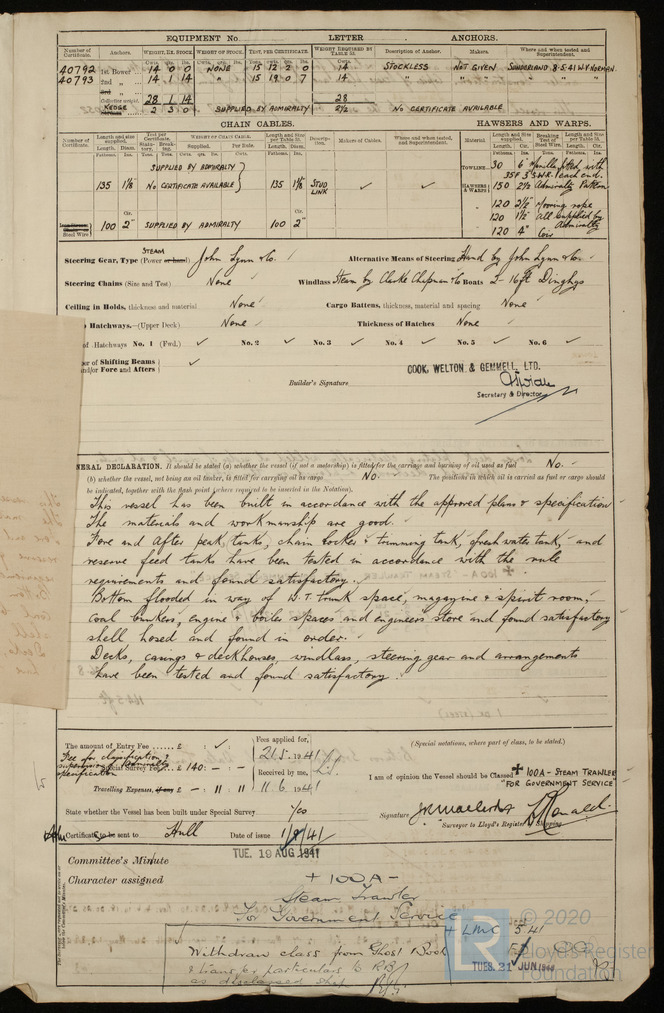 EQUIPMENT No. LETTER ANCHORS.
Number of Certificate. Anchors. WEIGHT, EX. STOCK. WEIGHT OF STOCK. TEST, PER CERTIFICATE. WEIGHT REQUIRED BY TABLE 53. Description of Anchor. Makers. Where and when tested and Superintendent.
40792 1st Bower 14 0 0 NONE 15 12 2 0 14 STOCKLESS NOT GIVEN SUNDERLAND 8.5.41 W.Y. NORMAN
40793 2nd " 14 1 14 " 15 19 0 7 14 " " " " "
28 1 14 28
KEDGE 2 3 0 SUPPLIED BY ADMIRALTY 2½ NO CERTIFICATE AVAILABLE
CHAIN CABLES. HAWSERS AND WARPS.
Number of Certificate. Length and size supplied. Test per Certificate. WEIGHT OF CHAIN CABLE. Length and size per Table 53. Description. Makers. Where and when tested, and Superintendent. Material. Length and size supplied. Breaking Test of Steel Wire. Length and size per Table 53.
SUPPLIED BY ADMIRALTY
135 1⅛ NO CERTIFICATE AVAILABLE 135 1⅛ STUD LINK
TOWLINE 30 6" Manilla fitted with
35F 3" S.W.R. each end.
HAWSERS & WARPS 150 2½ Admiralty Pattern
120 2½" Mooring rope
120 1½" All supplied by Admiralty
120 4" Coir
Steel Wire 100 2" SUPPLIED BY ADMIRALTY 100 2"
Steering Gear, Type (Power or hand) STEAM John Lynn & Co. Alternative Means of Steering Hand by John Lynn & Co.
Steering Chains (Size and Test) None Windlass Steam by Clarke Chapman & Co Boats 2- 16ft Dinghys
Ceiling in Holds, thickness and material None Cargo Battens, thickness, material and spacing None
Hatchways.—(Upper Deck) None Thickness of Hatches None
of Hatchways No. 1 (Fwd.) No. 2 No. 3 No. 4 No. 5 No. 6
of Shifting Beams
and/or Fore and Afters
COOK, WELTON & GEMMELL, LTD.
Builder's Signature
Secretary & Director
NERAL DECLARATION. It should be stated (a) whether the vessel (if not a motorship) is fitted for the carriage and burning of oil used as fuel No.
(b) whether the vessel, not being an oil tanker, is fitted for carrying oil as cargo No. The positions in which oil is carried as fuel or cargo should
be indicated, together with the flash point (where required to be inserted in the Notation).
This vessel has been built in accordance with the approved plans & specification
The materials and workmanship are good.
Fore and after peak, tanks, chain locker & trimming tank, fresh water tank, and
reserve feed tanks have been tested in accordance with the rule
requirements and found satisfactory.
Bottom flooded in way of W.T. trunk space, magazine & spirit room,
coal bunkers, engine & boiler spaces and engineers store and found satisfactory
shell hosed and found in order.
Decks, casings & deckhouses, windlass, steering gear and arrangements
have been tested and found satisfactory.
The amount of Entry Fee ...... £ : : Fees applied for, (Special notations, where part of class, to be stated.)
Fee for classification & supervision of Admiralty specification
Special Survey Fee £ 140: - : - 21.5.1941
Received by me, I am of opinion the Vessel should be Classed ✠ 100A - STEAM TRAWLER
"FOR GOVERNMENT SERVICE"
Travelling Expenses, £ - : 11 : 11 11.6.1941
State whether the Vessel has been built under Special Survey Yes Signature
Surveyor to Lloyd's Register of Shipping
Certificate to be sent to Hull Date of issue 1/9/41
TUE. 19 AUG 1941
Committee's Minute
Character assigned + 100A -
Steam Trawler
For Government Service
+ LMC 5.41
Withdraw class from Ghost Book
& transfer particulars to R.B.
as displayed ship
TUES. 21 JUN
LR
© 2020
Lloyd's Register
Foundation